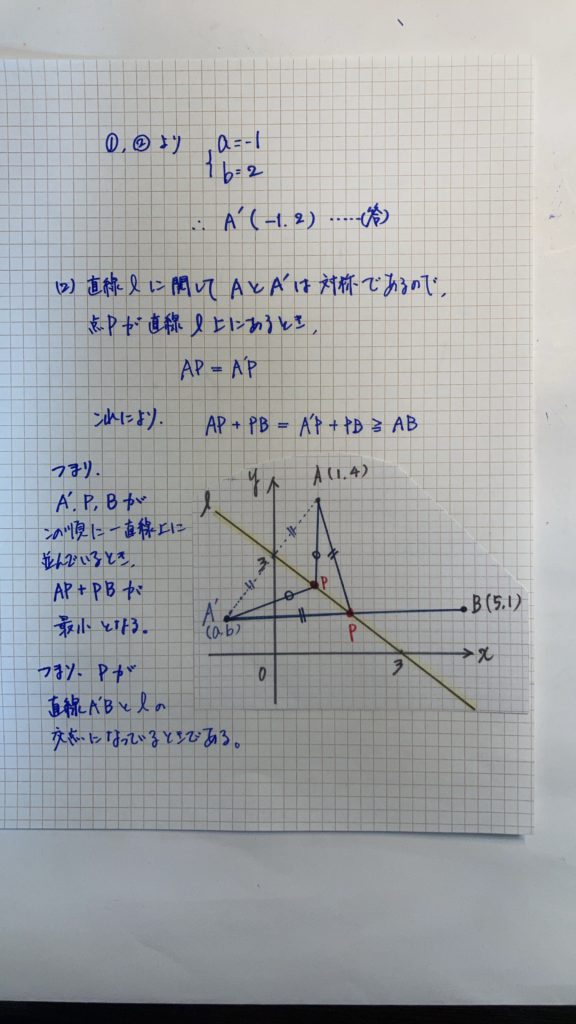 ①,② より { a=-1
b=2
∴ A′(-1.2) ……(答)
(2) 直線 l に 関して AとA′は 対称であるので,
点Pが 直線 l 上にあるとき,
AP = A′P
これにより. AP + PB = A′P + PB ≧ AB
つまり.
A′, P, B が
この順に一直線上に
並んでいるとき,
AP+PB が
最小となる。
つまり、Pが
直線A′Bとlの
交点になっているときである。
y
A(1,4)
l
3
P
A′
(a,b)
B(5,1)
P
0
3
x